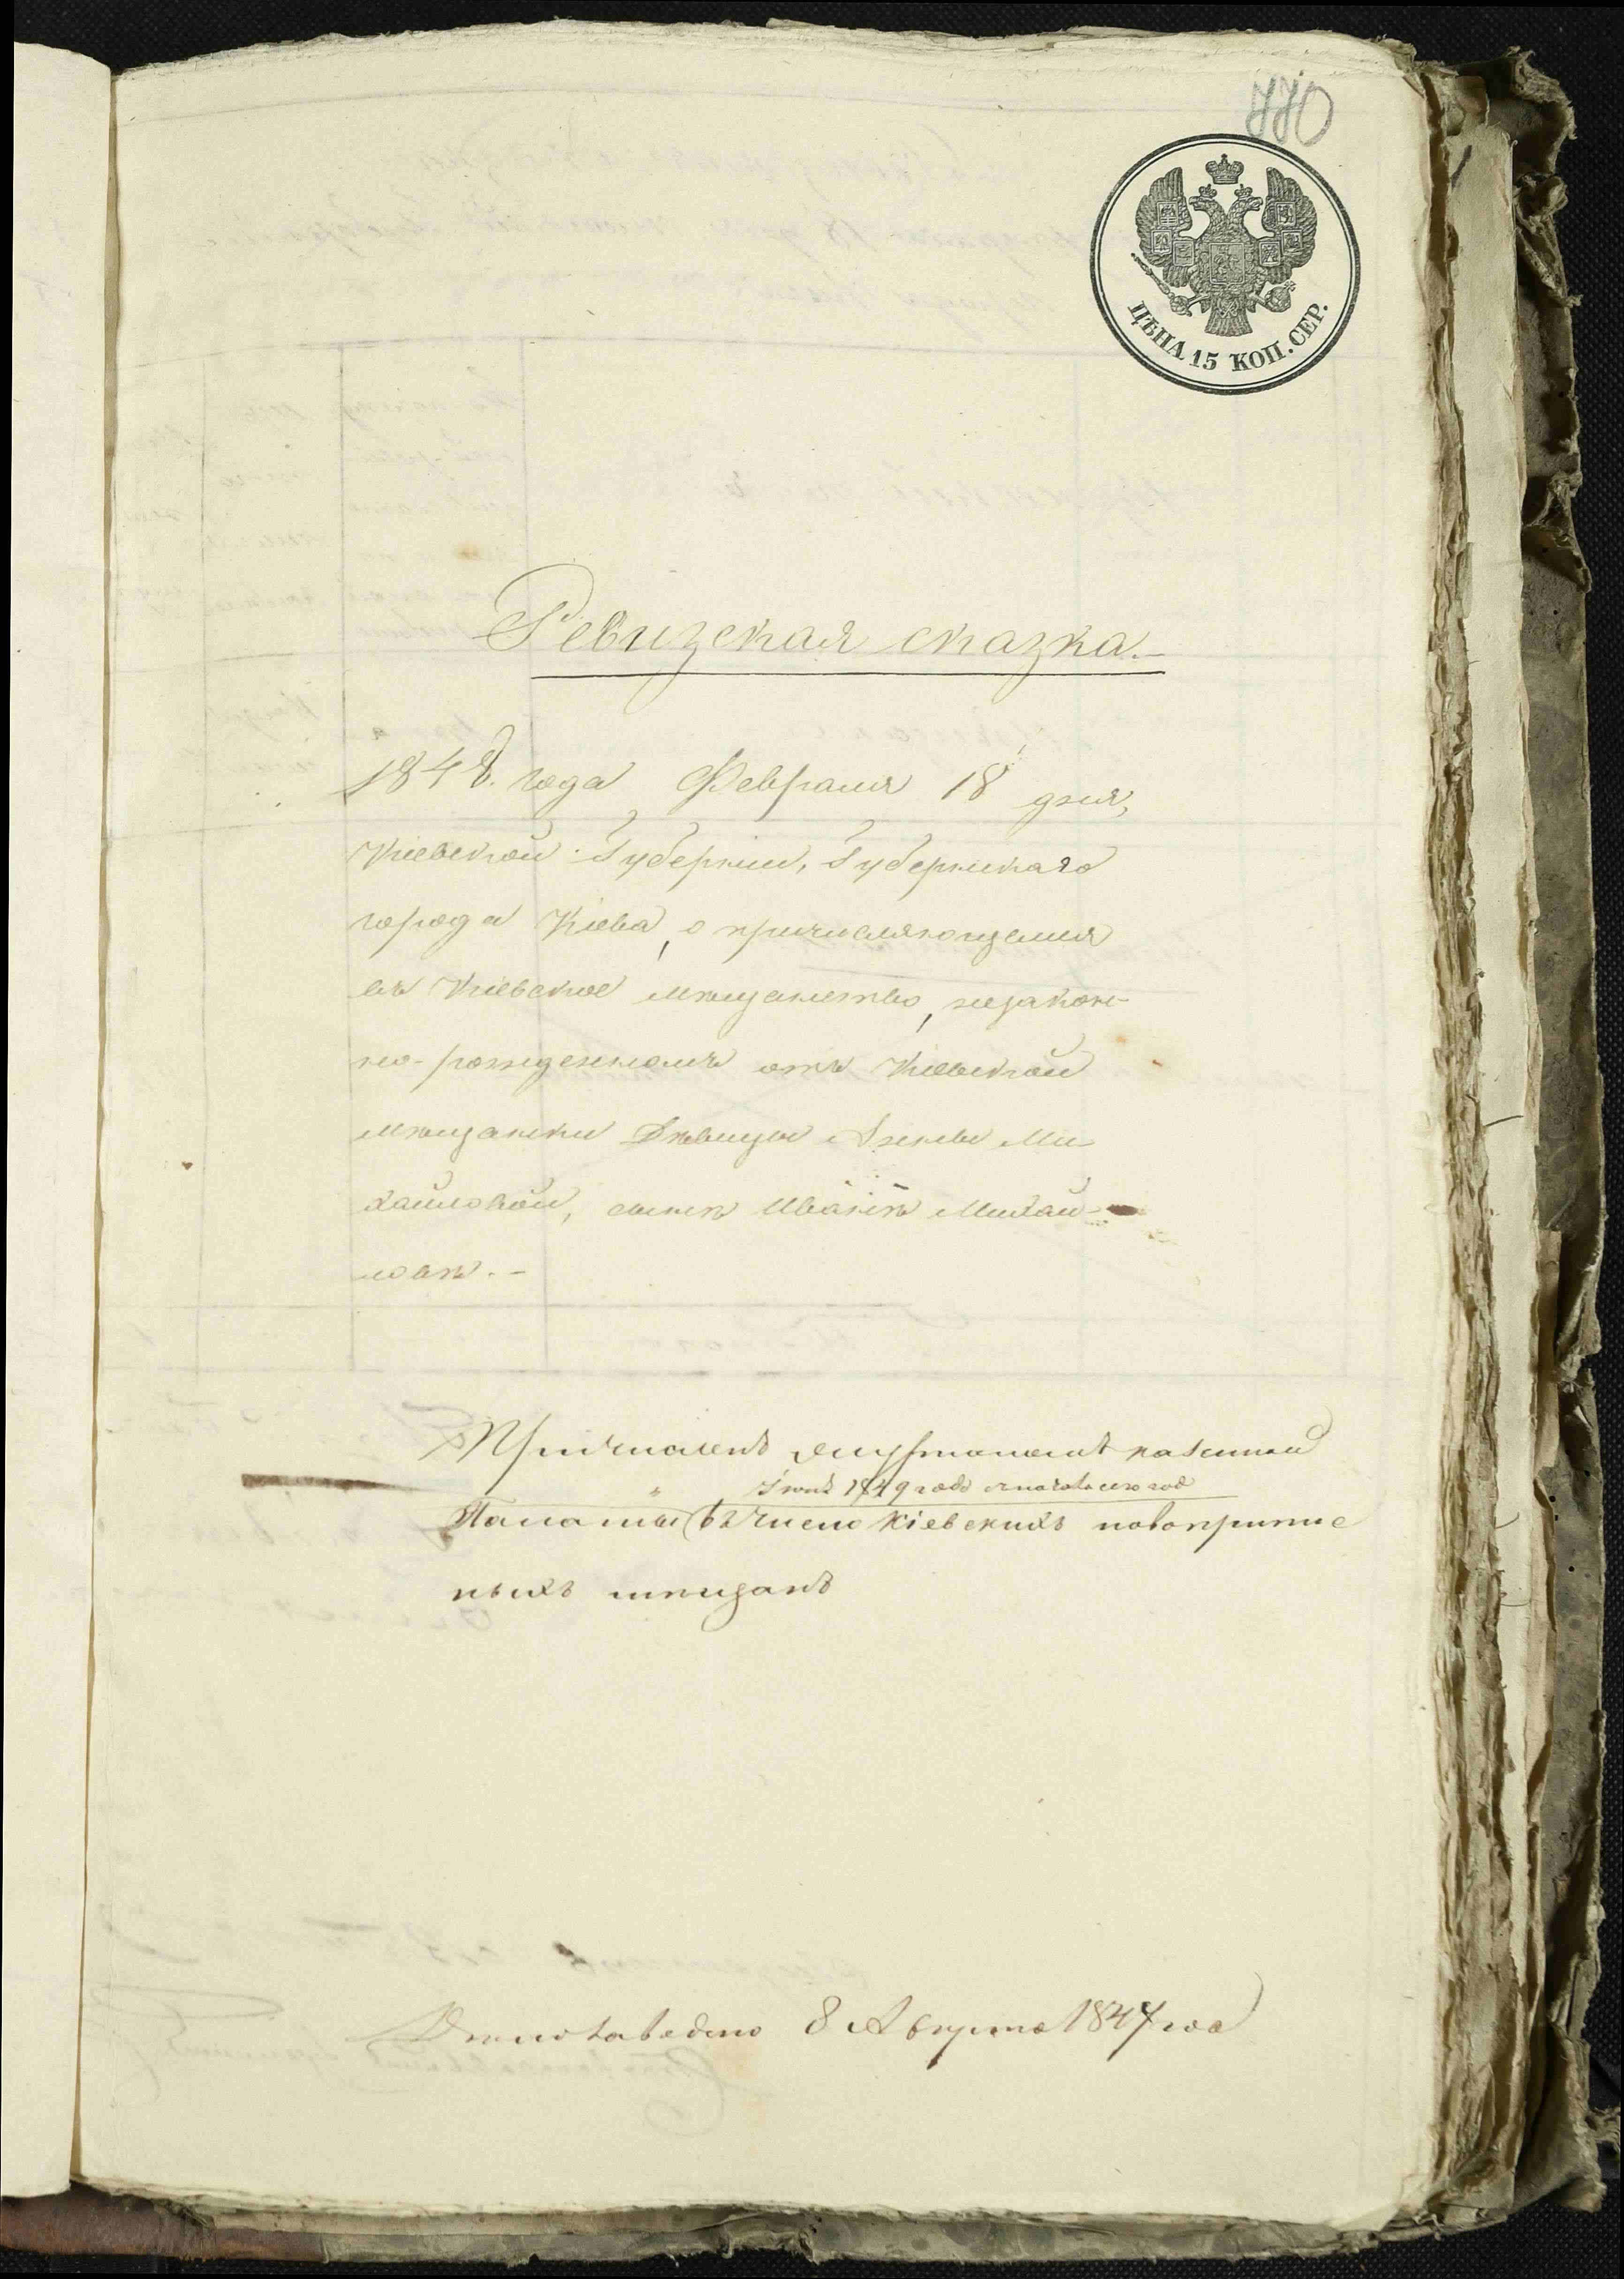 770
ЦѢНА 15 КОП. СЕР.
Ревизская сказка.–
1848. года Февраля 18 дня,
Кіевской Губерніи, Губернскаго
города Кіева, о причисляющемся
въ Кіевское мѣщанство, незакон-
но-рожденномъ отъ Кіевской
мѣщанки Дѣвицы Анны Ми
хайловой, сынѣ Иванѣ Михай-
ловѣ.–
Причисленъ казенной
1849 года сначала сего года
Палаты въ число Кіевскихъ
ныхъ мѣщанъ
8 Августа 1847 года